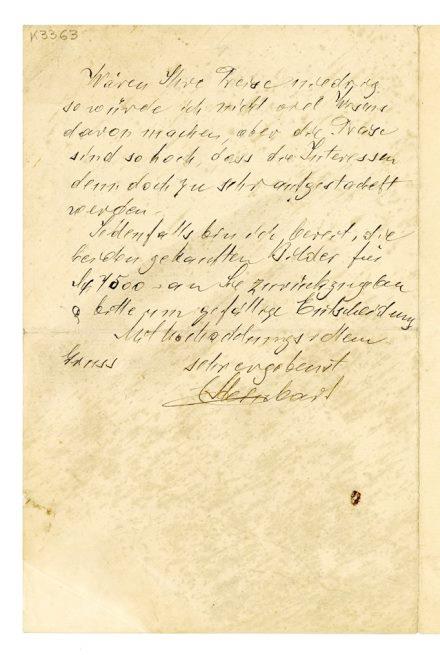 K3363
Wären Ihre Preise niedrig
so würde ich nicht viel Wesens
davon machen, aber die Preise
sind so hoch, dass die Interessen
denn doch zu sehr
werden.
Jedenfalls bin ich bereit, die
beiden gekauften Bilder für
M 4500 - an Sie zurückzugeben
& bitte um gefällige Entscheidung
Mit hochachtungsvollem
Gruss sehr ergebenst